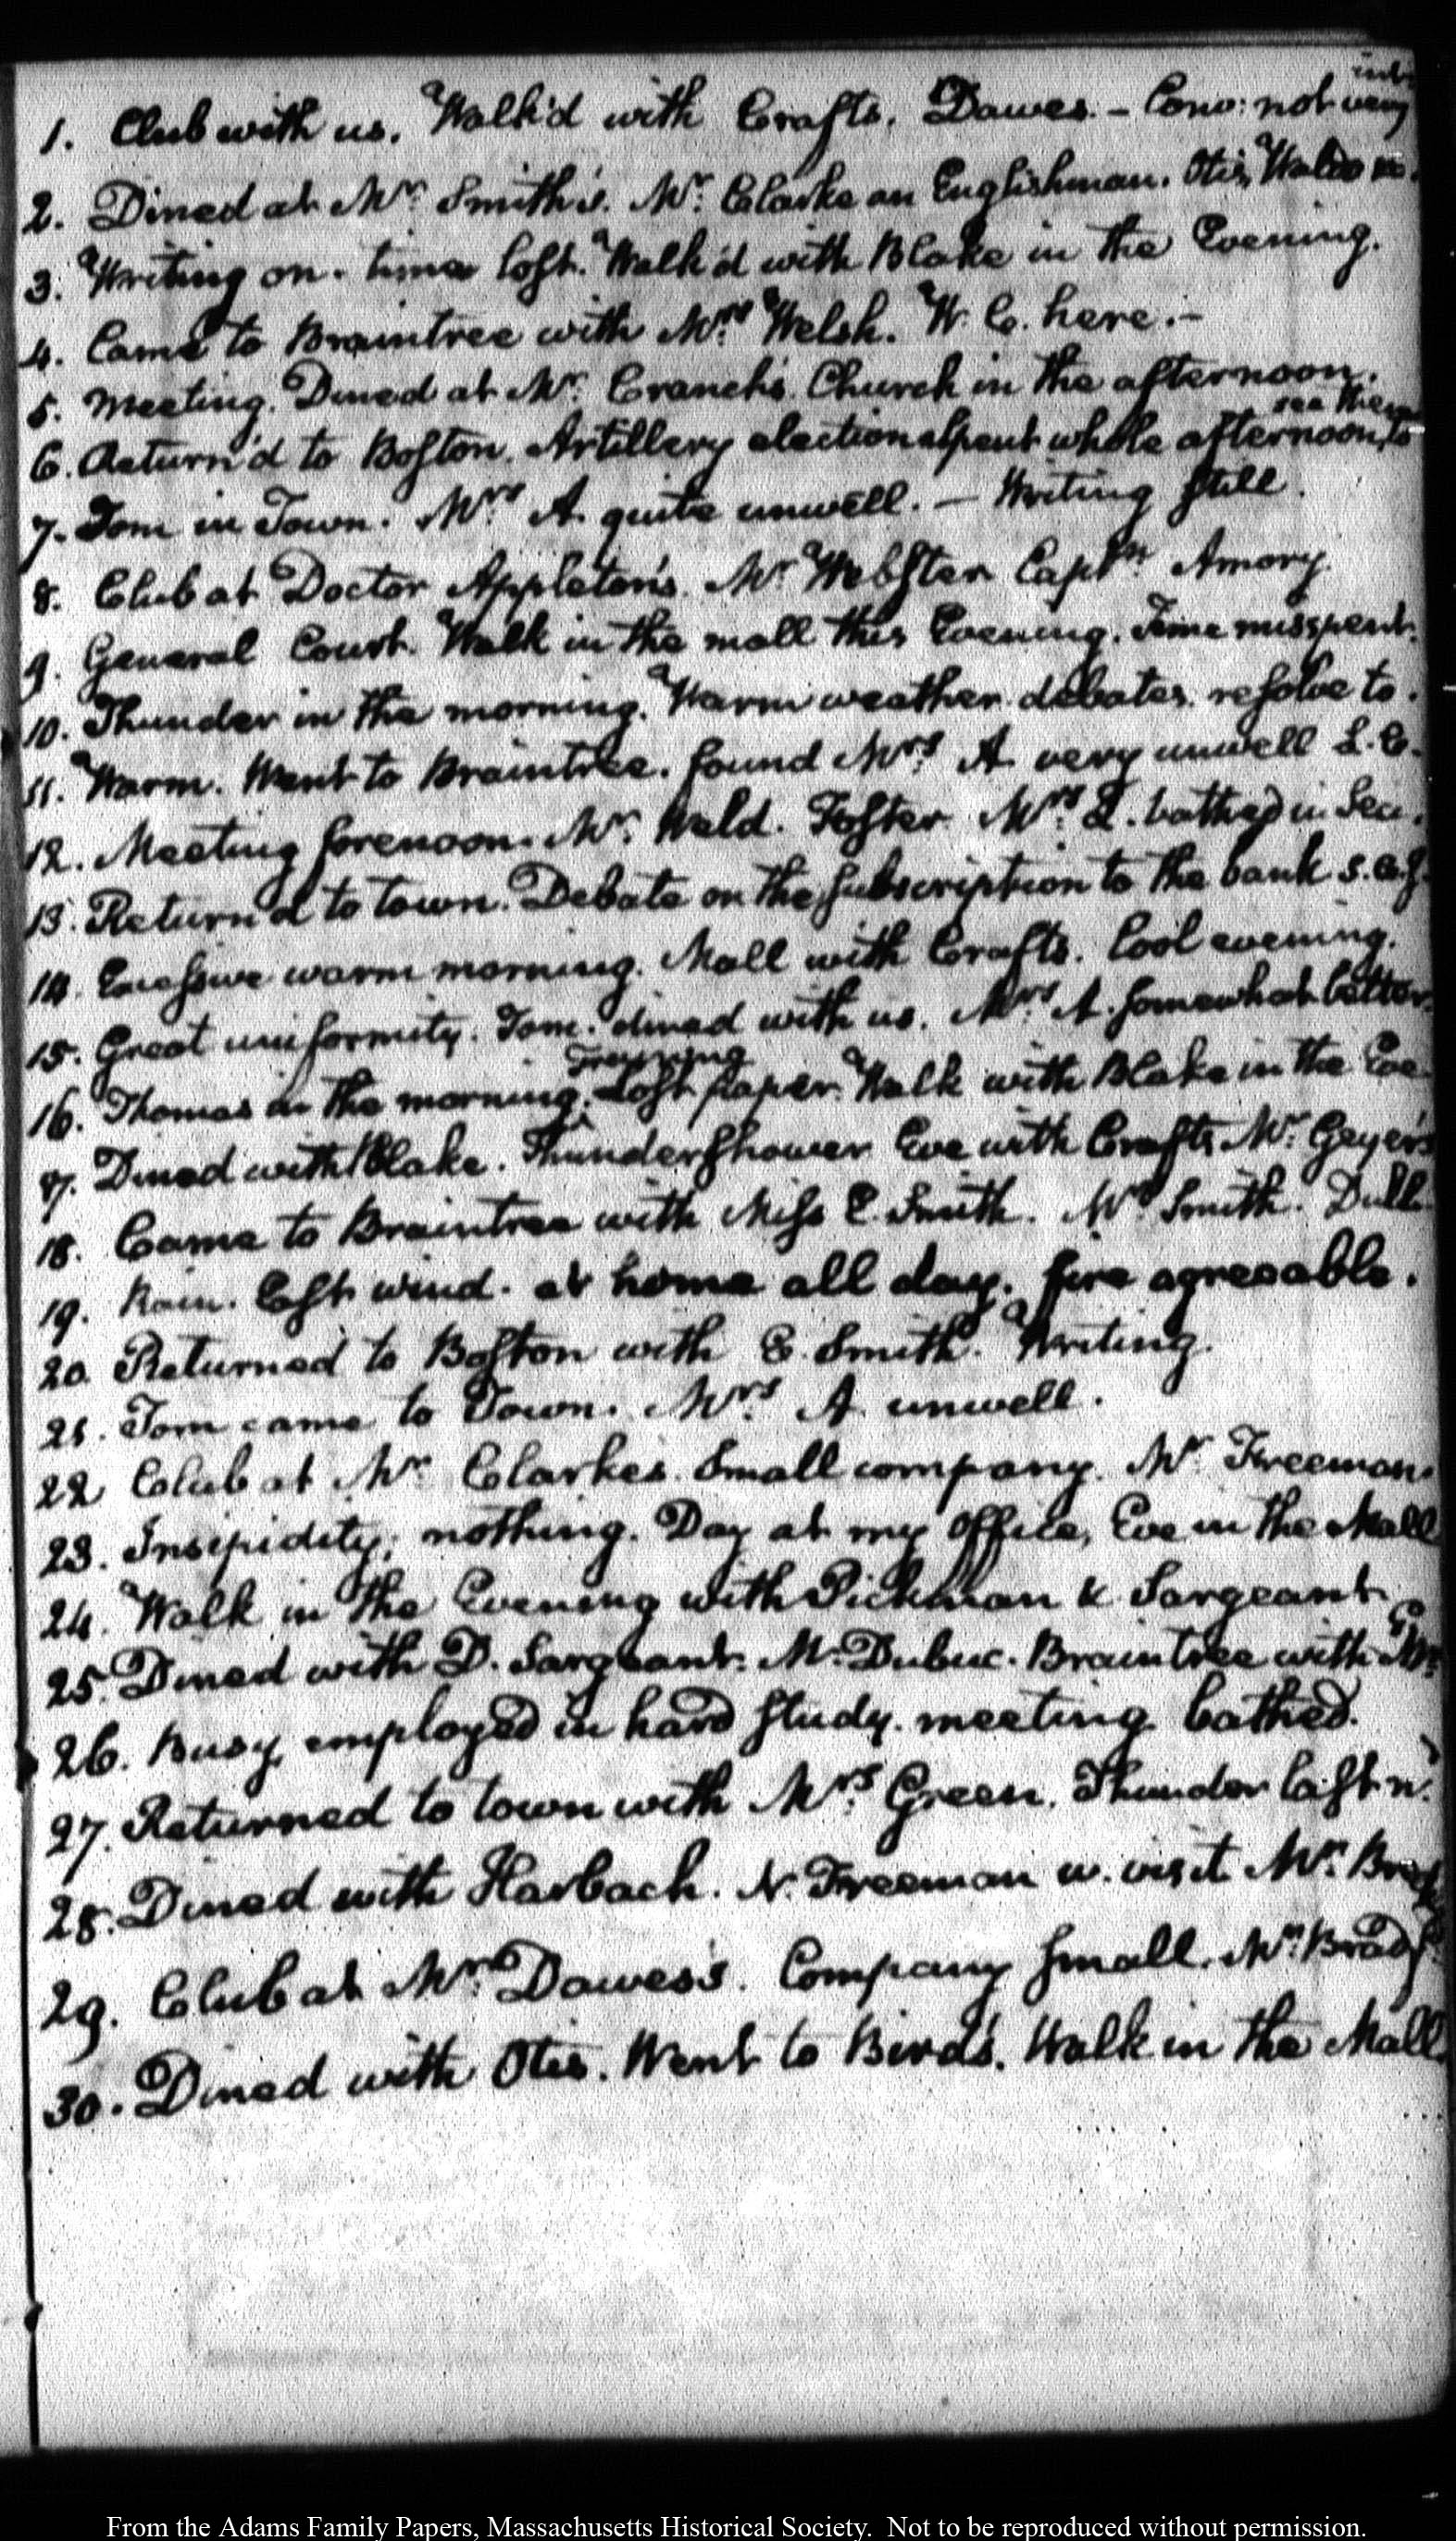 1. Club with us. Walk'd with Crafts. Dawes. – Conv: not very int:
2. Dined at Mr. Smith's. Mr. Clarke an Englishman. Otis, Waldo &c.
3. Writing on. time lost. Walk'd with Blake in the Evening.
4. Came to Braintree with Mrs. Welsh. W. C. here. –
5. Meeting. Dined at Mr. Cranch's. Church in the afternoon.
6. Return'd to Boston. Artillery election spent whole afternoon, to see them
7. Tom in Town. Mrs. A. quite unwell. – Writing still.
8. Club at Doctor Appleton's. Mr. Webster Captn. Amory.
9. General Court. Walk in the mall this Evening. Time misspent.
10. Thunder in the morning. Warm weather. debates. resolve to.
11. Warm. Went to Braintree. found Mrs. A very unwell L. C.
12. Meeting forenoon. Mr. Weld. Foster Mrs. bathed in Sea.
13. Return'd to town. Debate on the subscription to the bank
14. Excessive warm morning. Mall with Crafts. Cool evening.
15. Great uniformity. Tom. dined with us. Mrs. A. somewhat better.
16. Thomas in the morning. Lost paper. Walk with Blake in the Eve
17. Dined with Blake. Thunder shower Eve with Crafts Mr. Geyer's
18. Came to Braintree with Miss E. Smith. Mrs. Smith. Dull.
19. Rain. East wind. at home all day. fire agreeable.
20. Returned to Boston with E. Smith. Writing.
21. Tom came to Town. Mrs. A. unwell.
22. Club at Mr. Clarke's. Small company. Mr. Freeman.
23. Insipidity; nothing. Day at my office, Eve in the Mall
24. Walk in the Evening with Pickman & Sargeant.
25. Dined with D. Sargeant. Mr. Dubuc. Braintree with
26. Busy employed in hard study. meeting. bathed.
27. Returned to town with Mrs. Green. Thunder last n.
28. Dined with Harbach. N. Freeman w. visit Mr.
29. Club at Mr. Dawes's. Company small. Mr. Bradf
30. Dined with Otis. Went to Bird's. Walk in the Mall.
From the Adams Family Papers, Massachusetts Historical Society. Not to be reproduced without permission.